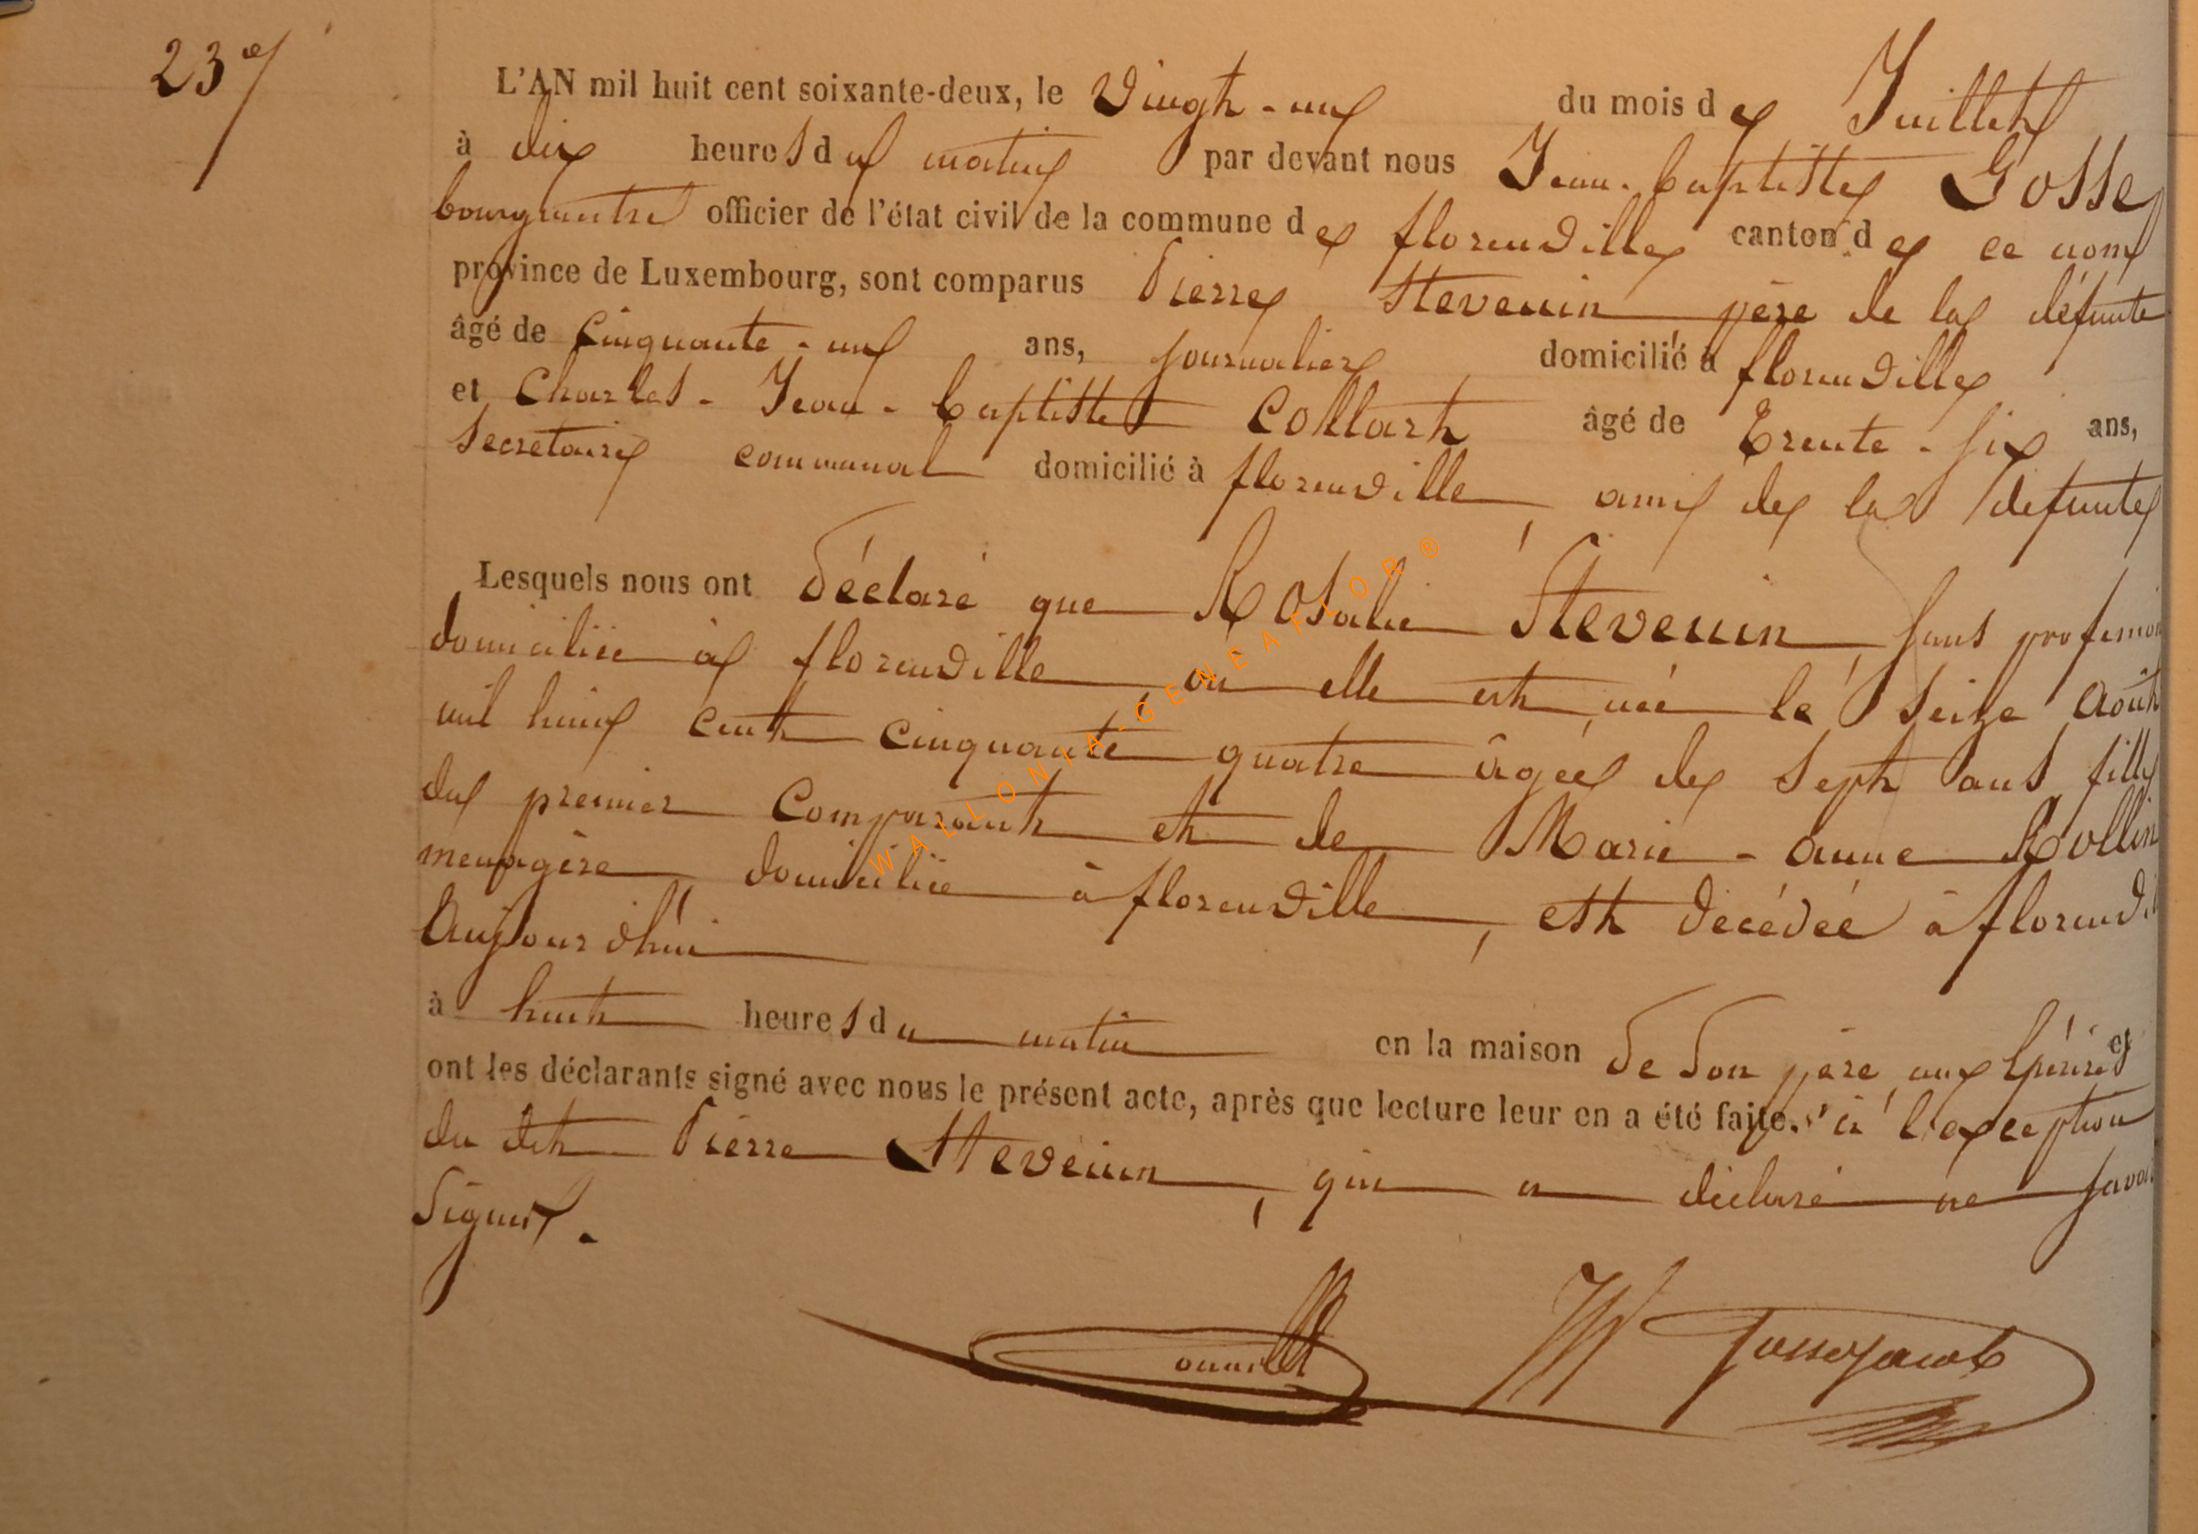 23e
L'AN mil huit cent soixante-deux, le Vingt-un du mois de Juillet
à dix heures du matin par devant nous Jean-baptiste Gosse
bourgmestre officier de l'état civil de la commune de florenville canton de ce nom
province de Luxembourg, sont comparus Pierre Stevenin père de la défunte
âgé de Cinquante-un ans, journalier domicilié à florenville
et Charles-Jean-baptiste Collart âgé de Trente-six ans,
Secretaire communal domicilié à florenville, ami de la defunte
Lesquels nous ont déclaré que Rosalie Stevenin, sans profession
domiciliée à florenville, où elle est née le seize Août
mil huit cent cinquante quatre âgée de sept ans fille
du premier Comparant et de Marie-anne Rollin
menagère, domiciliée à florenville, est décédée à florenvil
Aujourd'hui
à huit heures du matin en la maison de son père et
ont les déclarants signé avec nous le présent acte, après que lecture leur en a été faite. à l'exception
du dit Pierre Stevenin, qui a déclaré ne savoi
Signer.
WALLONIA-GENEAFLOR®